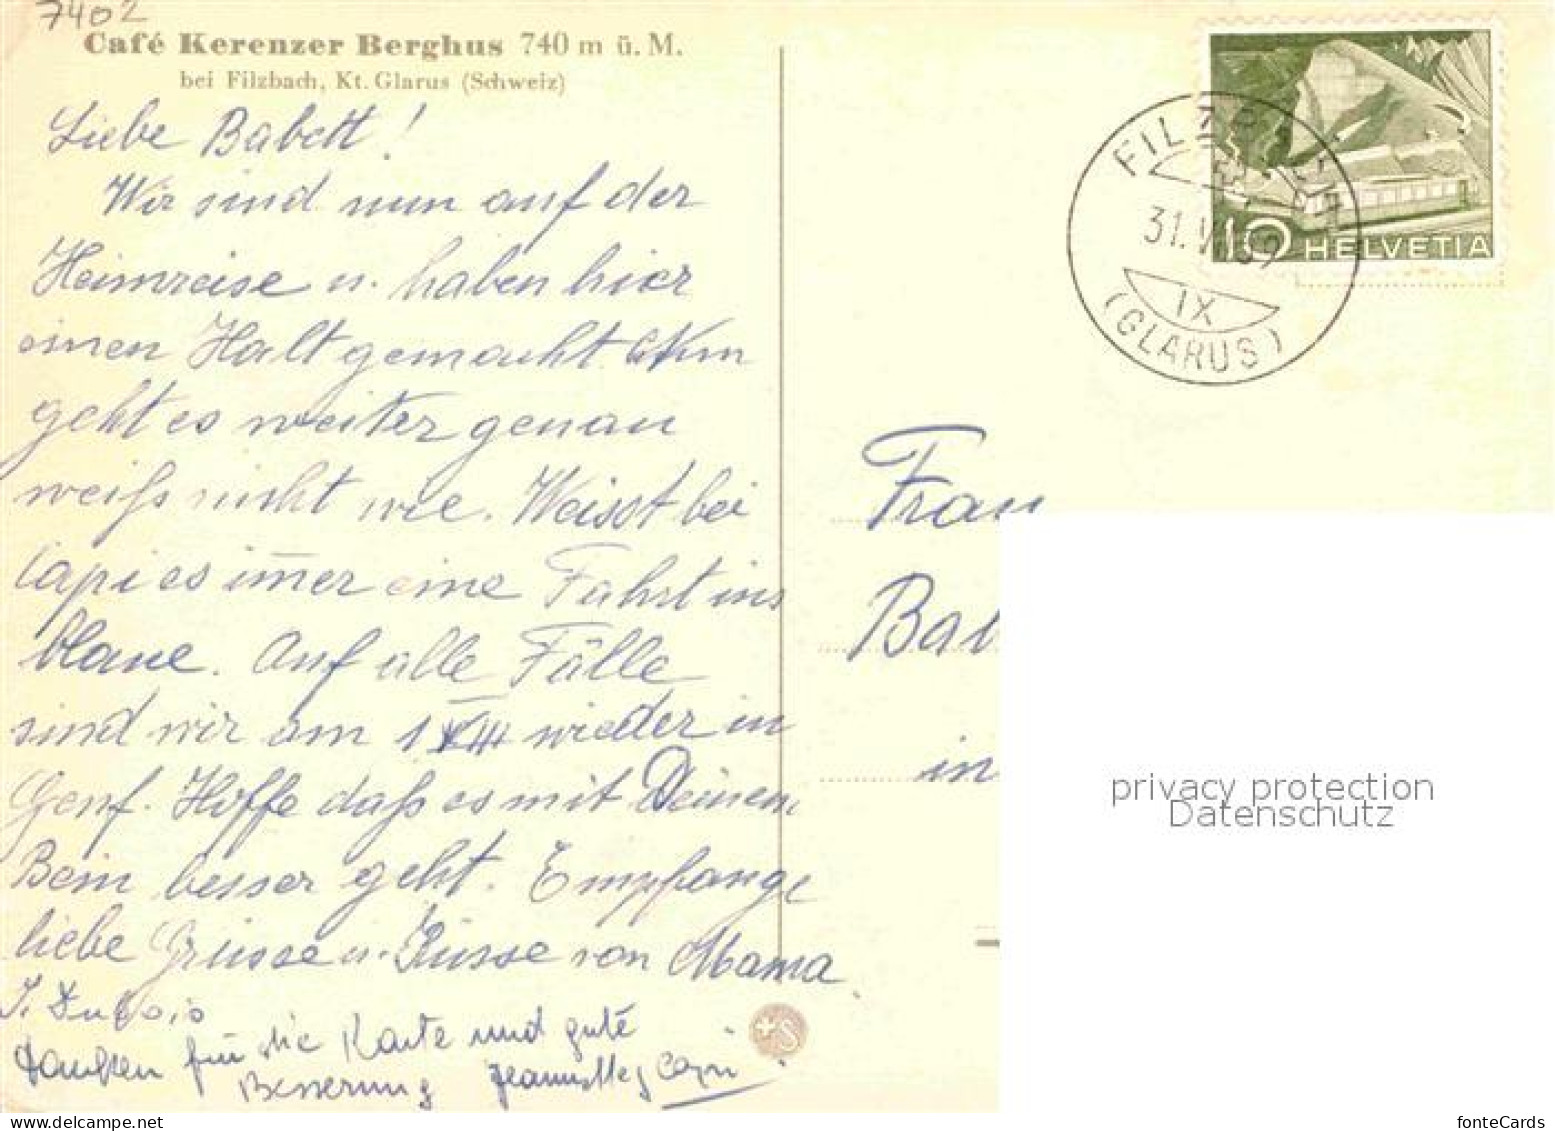 7402
Café Kerenzer Berghus 740 m ü. M.
bei Filzbach, Kt. Glarus (Schweiz)
Liebe Babett!
Wir sind nun auf der
Heimreise u. haben hier
einen Halt gemacht.
geht es weiter genau
weiß nicht wie. Weisst bei
Capi es im̄er eine Fahrt ins
blaue. Auf alle Fälle
sind wir am 1 VIII wieder in
Genf. Hoffe daß es mit Deinem
Bein besser geht. Empfange
liebe Grüsse u. Küsse von Mama
Dubois
Danken für die Karte und gute
Besserung Capi
+S
FILZBACH
31.V 59
IX
(GLARUS)
10 HELVETIA
Frau
Bab
in
privacy protection
Datenschutz
delcampe.net
fonteCards